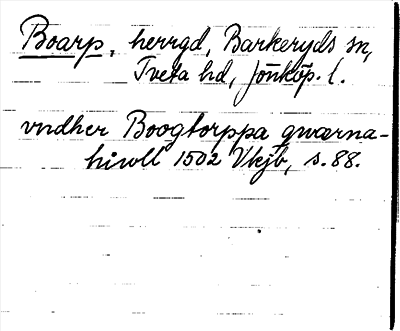 Boarp, herrgd, Barkeryds sn,
Tveta hd, Jönköp. l.
vndher Boogtorppa qwærna-
hiwll 1502 Vkjb, s. 88.